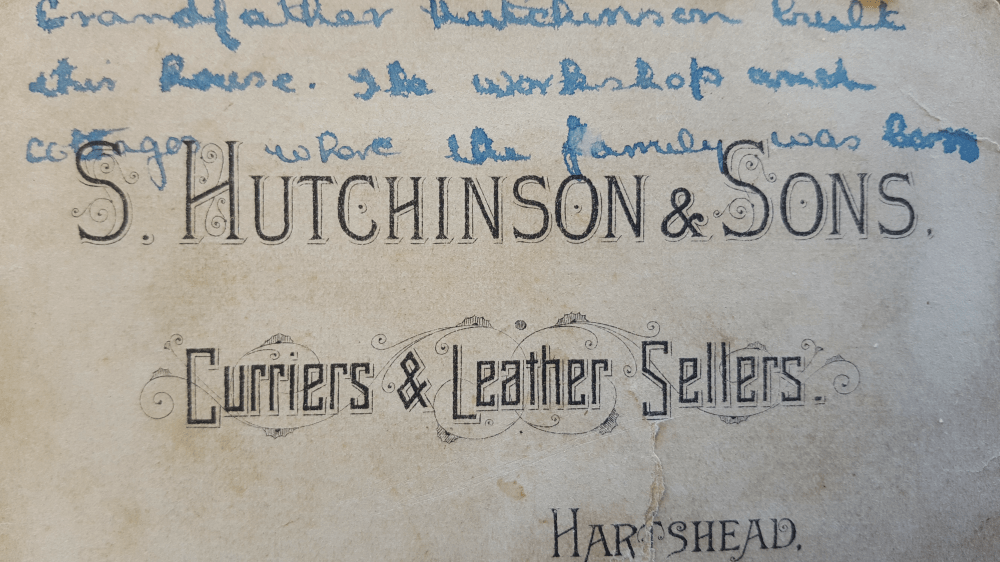 Grandfather Hutchinson built
this house. The workshop and
cottages where the family was born
S. HUTCHINSON & SONS.
Curriers & Leather Sellers.
HARTSHEAD.